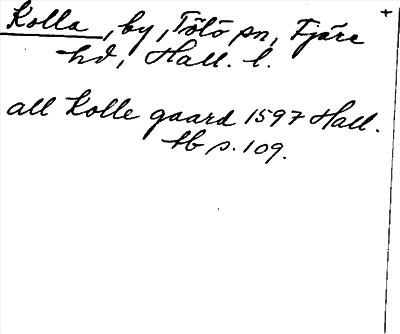 Kolla, by, Tölö sn, Fjäre
hd, Hall. l.
all Kolle gaard 1597 Hall.
tb s. 109.